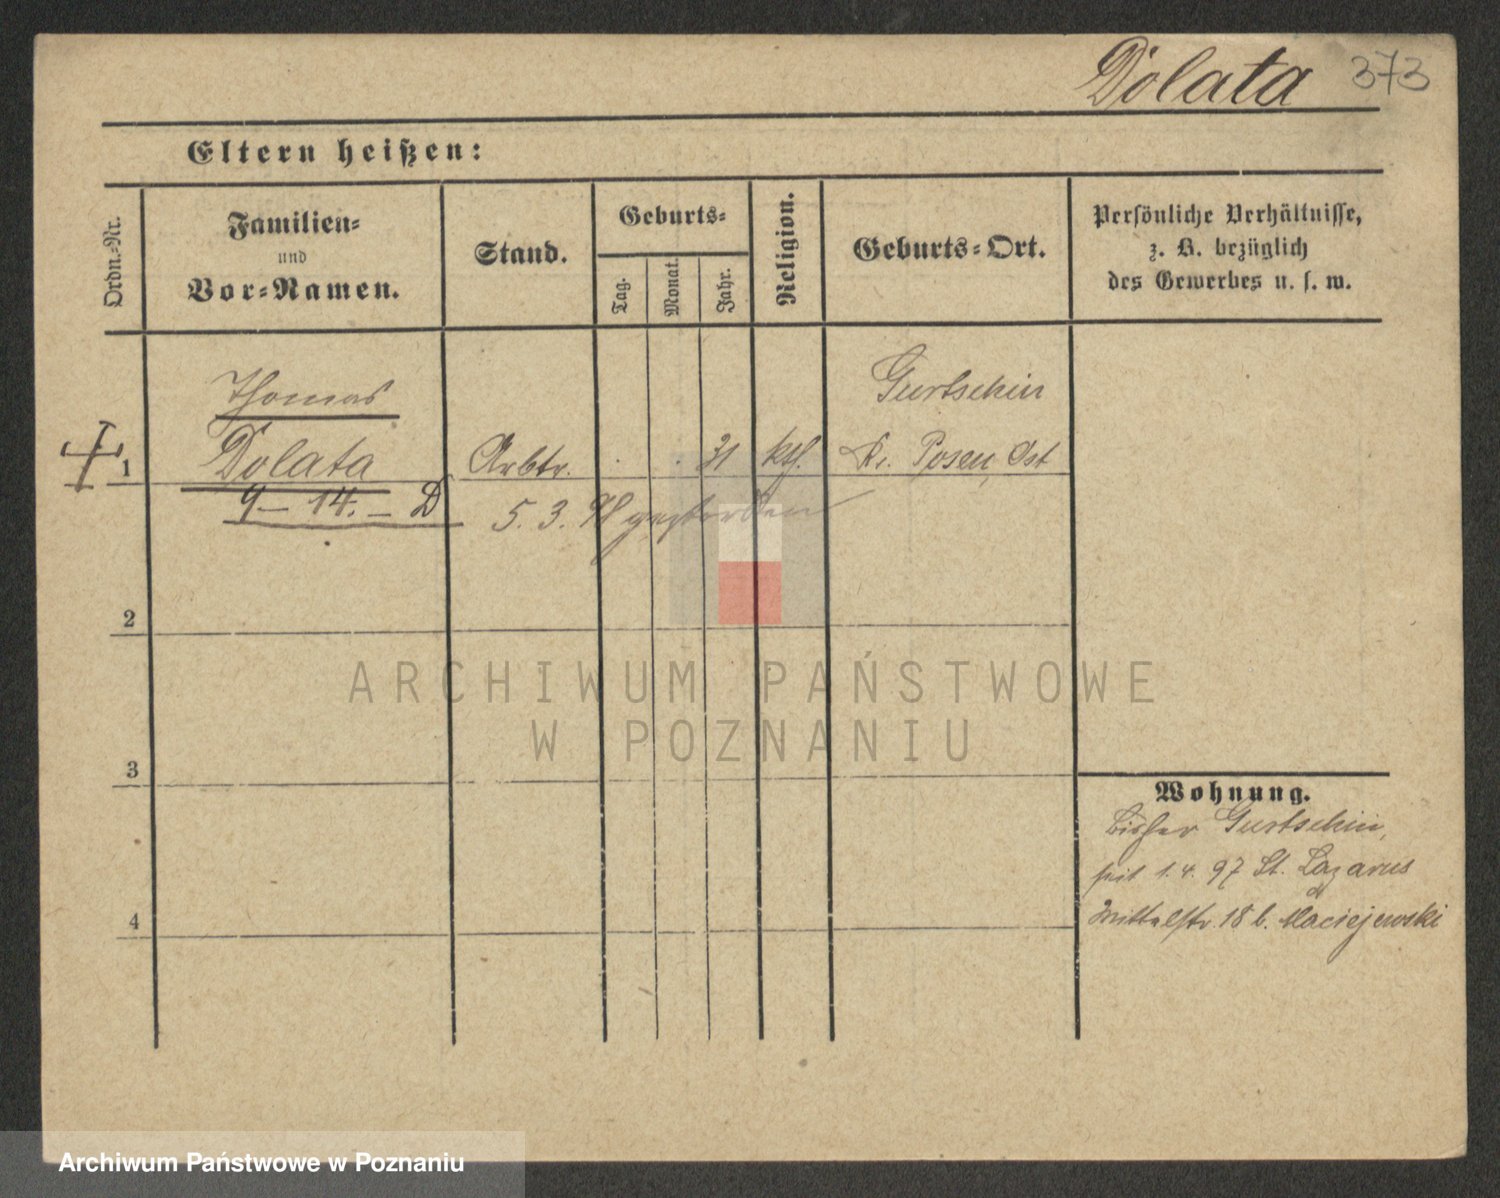 Dolata 373
Eltern heißen:
Ordn.-Nr.
Familien-
und
Vor-Namen.
Stand.
Geburts-
Tag.
Monat.
Jahr.
Religion.
Geburts-Ort.
Persönliche Verhältnisse,
z. B. bezüglich
des Gewerbes u. s. w.
Thomas
Gurtschin
1 Dolata Arbtr. 31 kth. Kr. Posen, Ost
9 – 14. – D
5. 3. 98 gestorben
2
3
4
Wohnung.
bisher Gurtschin,
seit 1. 4. 97 St. Lazarus
Mittelstr. 18 b. Maciejewski
ARCHIWUM PAŃSTWOWE
W POZNANIU
Archiwum Państwowe w Poznaniu